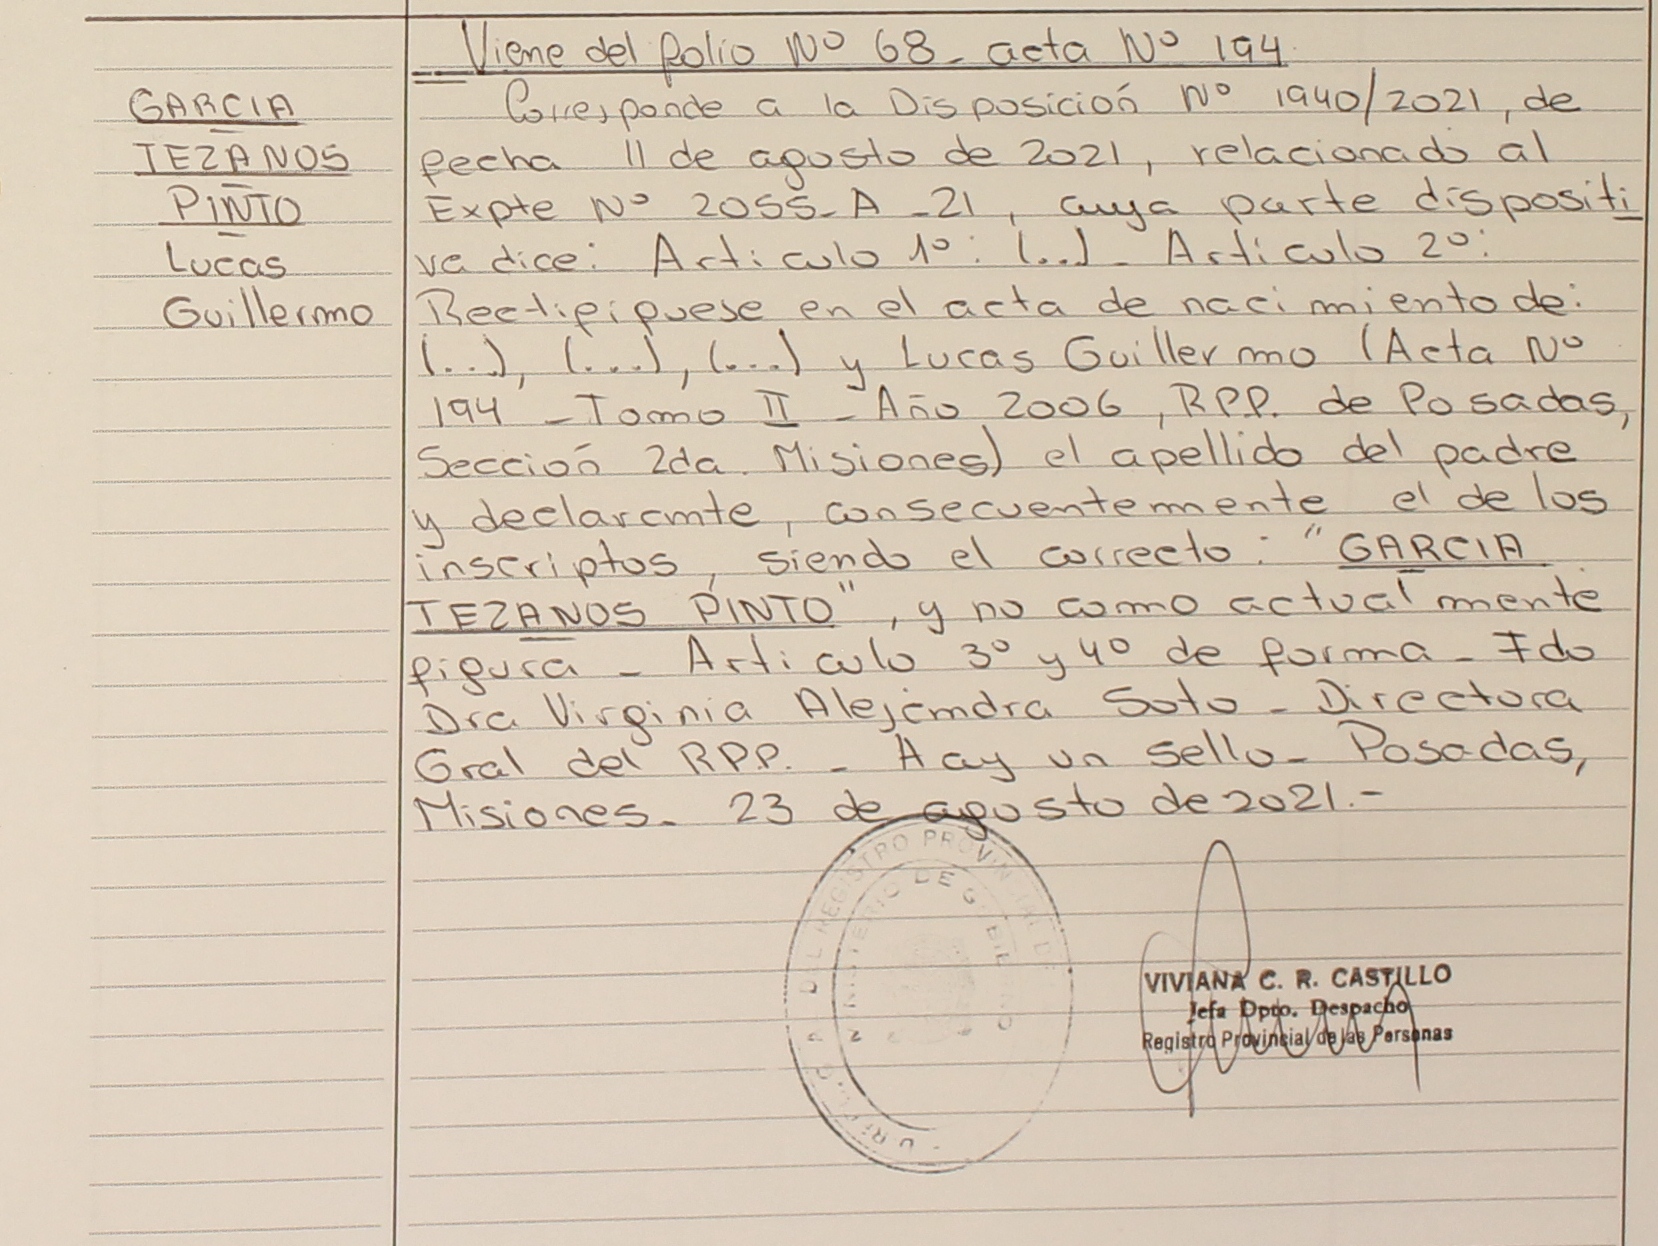 Viene del folio Nº 68 - acta Nº 194
GARCIA
TEZANOS
PINTO
Lucas
Guillermo
Corresponde a la Disposición Nº 1940/2021, de
fecha 11 de agosto de 2021, relacionado al
Expte Nº 2055-A-21, cuya parte dispositi
va dice: Articulo 1º: (...) - Articulo 2º:
Rectifiquese en el acta de nacimiento de:
(...), (...), (...) y Lucas Guillermo (Acta Nº
194 - Tomo II - Año 2006, RPP. de Posadas,
Sección 2da. Misiones) el apellido del padre
y declarante, consecuentemente el de los
inscriptos, siendo el correcto: "GARCIA
TEZANOS PINTO", y no como actualmente
figura - Articulo 3º y 4º de forma - Fdo
Dra Virginia Alejandra Soto - Directora
Gral del RPP. - Hay un sello - Posadas,
Misiones - 23 de agosto de 2021.-
DEL REGISTRO PROVINCIAL DE
MINISTERIO DE GOBIERNO
VIVIANA C. R. CASTILLO
Jefa Dpto. Despacho
Registro Provincial de las Personas